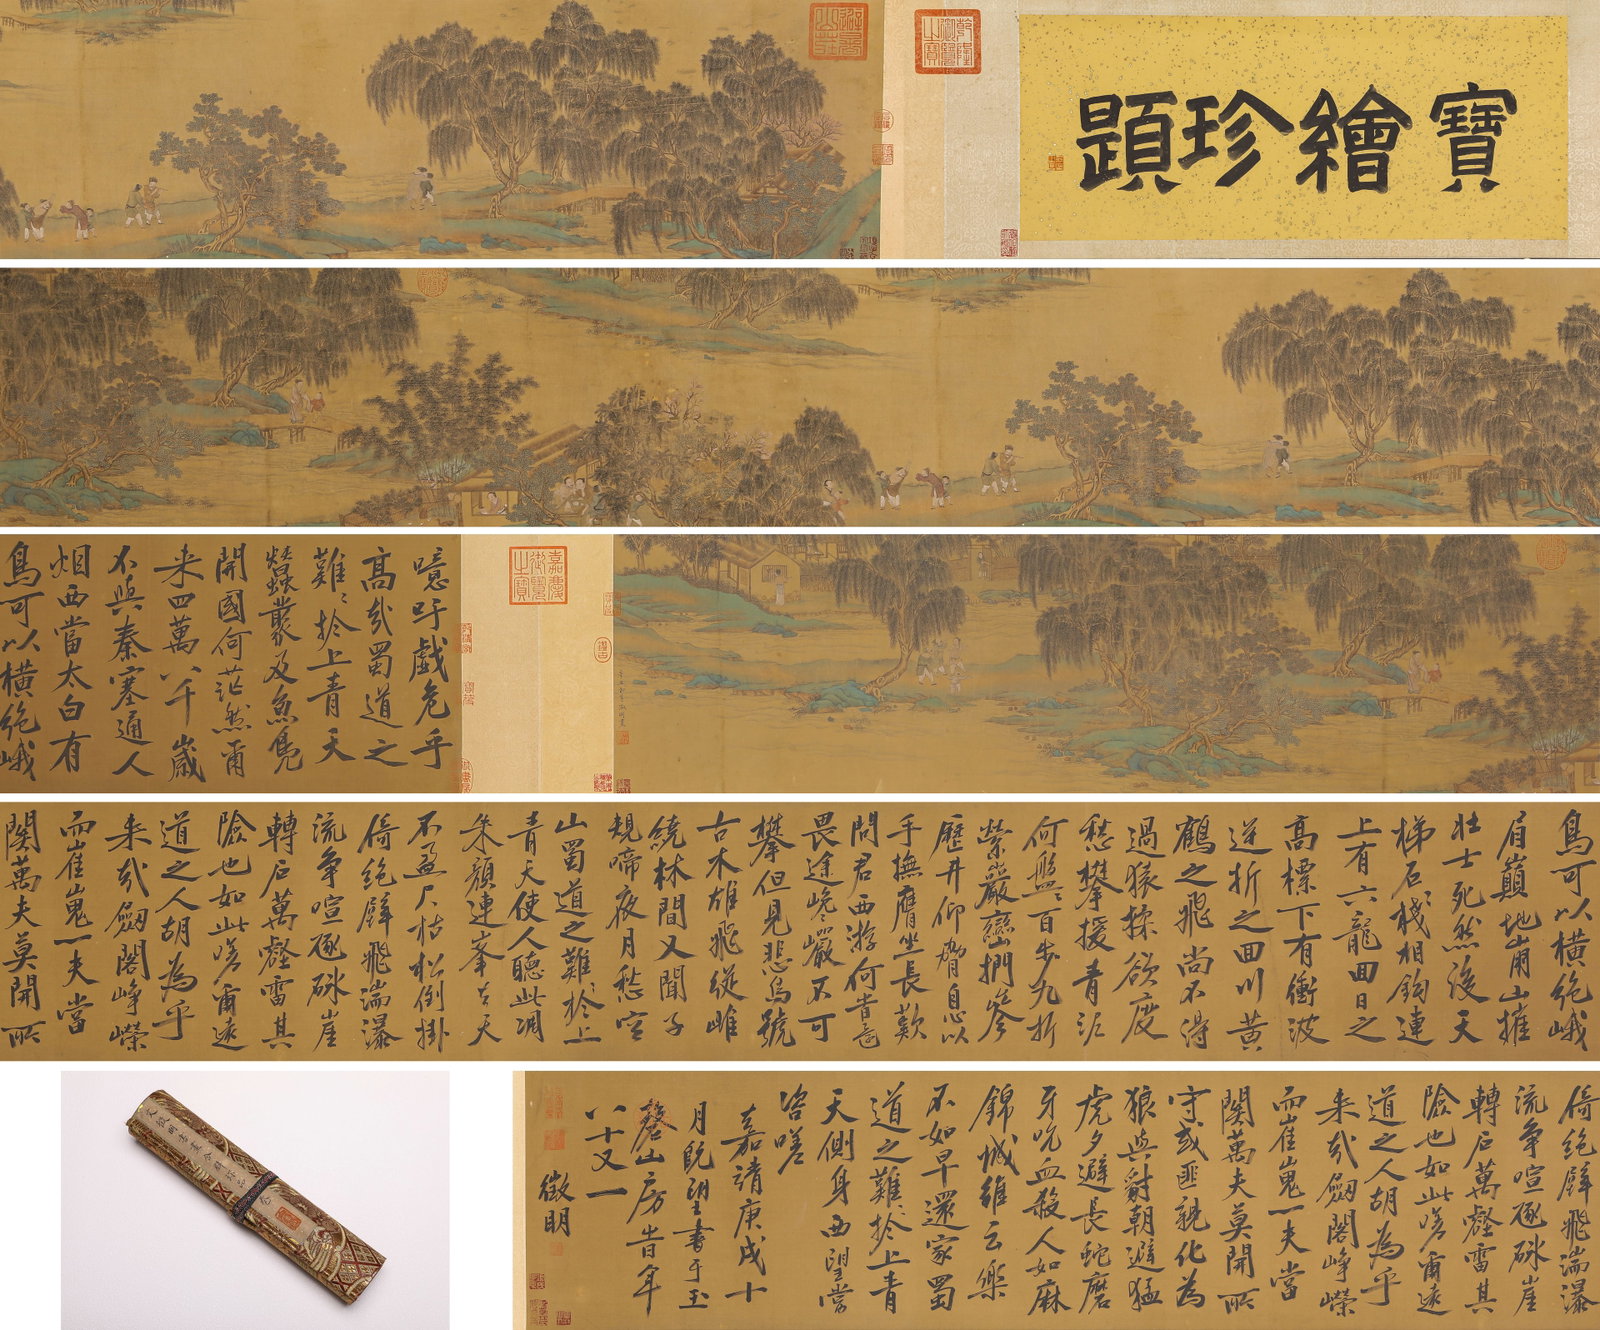 寶繪珍題
避暑山莊
乾隆御覽之寶
嘉慶御覽之寶
噫吁戲危乎
高哉蜀道之
難〻於上青天
蠶叢及魚鳧
開國何茫然爾
来四萬八千歳
不與秦塞通人
烟西當太白有
鳥可以横絶峨
鳥可以横絶峨
眉巔地崩山摧
壮士死然後天
梯石棧相鈎連
上有六龍回日之
高標下有衝波
逆折之回川黄
鶴之飛尚不得
過猿猱欲度
愁攀援青泥
何盤〻百步九折
縈巖巒捫參
歷井仰脅息以
手撫膺坐長歎
問君西游何時還
畏途巉巖不可
攀但見悲鳥號
古木雄飛從雌
繞林間又聞子
規啼夜月愁空
山蜀道之難〻於上
青天使人聽此凋
朱顔連峯去天
不盈尺枯松倒掛
倚絶壁飛湍瀑
流争喧豗砯崖
轉石萬壑雷其
險也如此嗟爾遠
道之人胡為乎
来哉劔閣崢嶸
而崔嵬一夫當
関萬夫莫開所
倚絶壁飛湍瀑
流争喧豗砯崖
轉石萬壑雷其
險也如此嗟爾遠
道之人胡為乎
来哉劔閣崢嶸
而崔嵬一夫當
関萬夫莫開所
守或匪親化為
狼與豺朝避猛
虎夕避長蛇磨
牙吮血殺人如麻
錦城雖云樂
不如早還家蜀
道之難〻於上青
天側身西望常
咨嗟
嘉靖庚戌十
月既望書于玉
磬山房昔年
八十又一
徵明